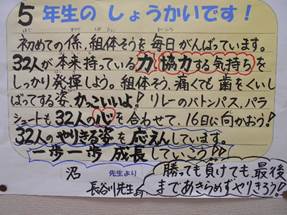 5年生のしょうかいです!
初めての係、組体そうを毎日がんばっています。
32人が本来持っている力、協力する気持ちを
しっかり発揮しよう。組体そう、痛くても歯をくいし
ばってする姿、かっこいいよ!リレーのバトンパス、パラ
シュートも32人の心を合わせて、16日に向かおう!
32人のやりきる姿を応えんしています。
一歩一歩成長していこう!
沼 先生より
長谷川先生
勝っても負けても、最後
まであきらめずやりきろう!